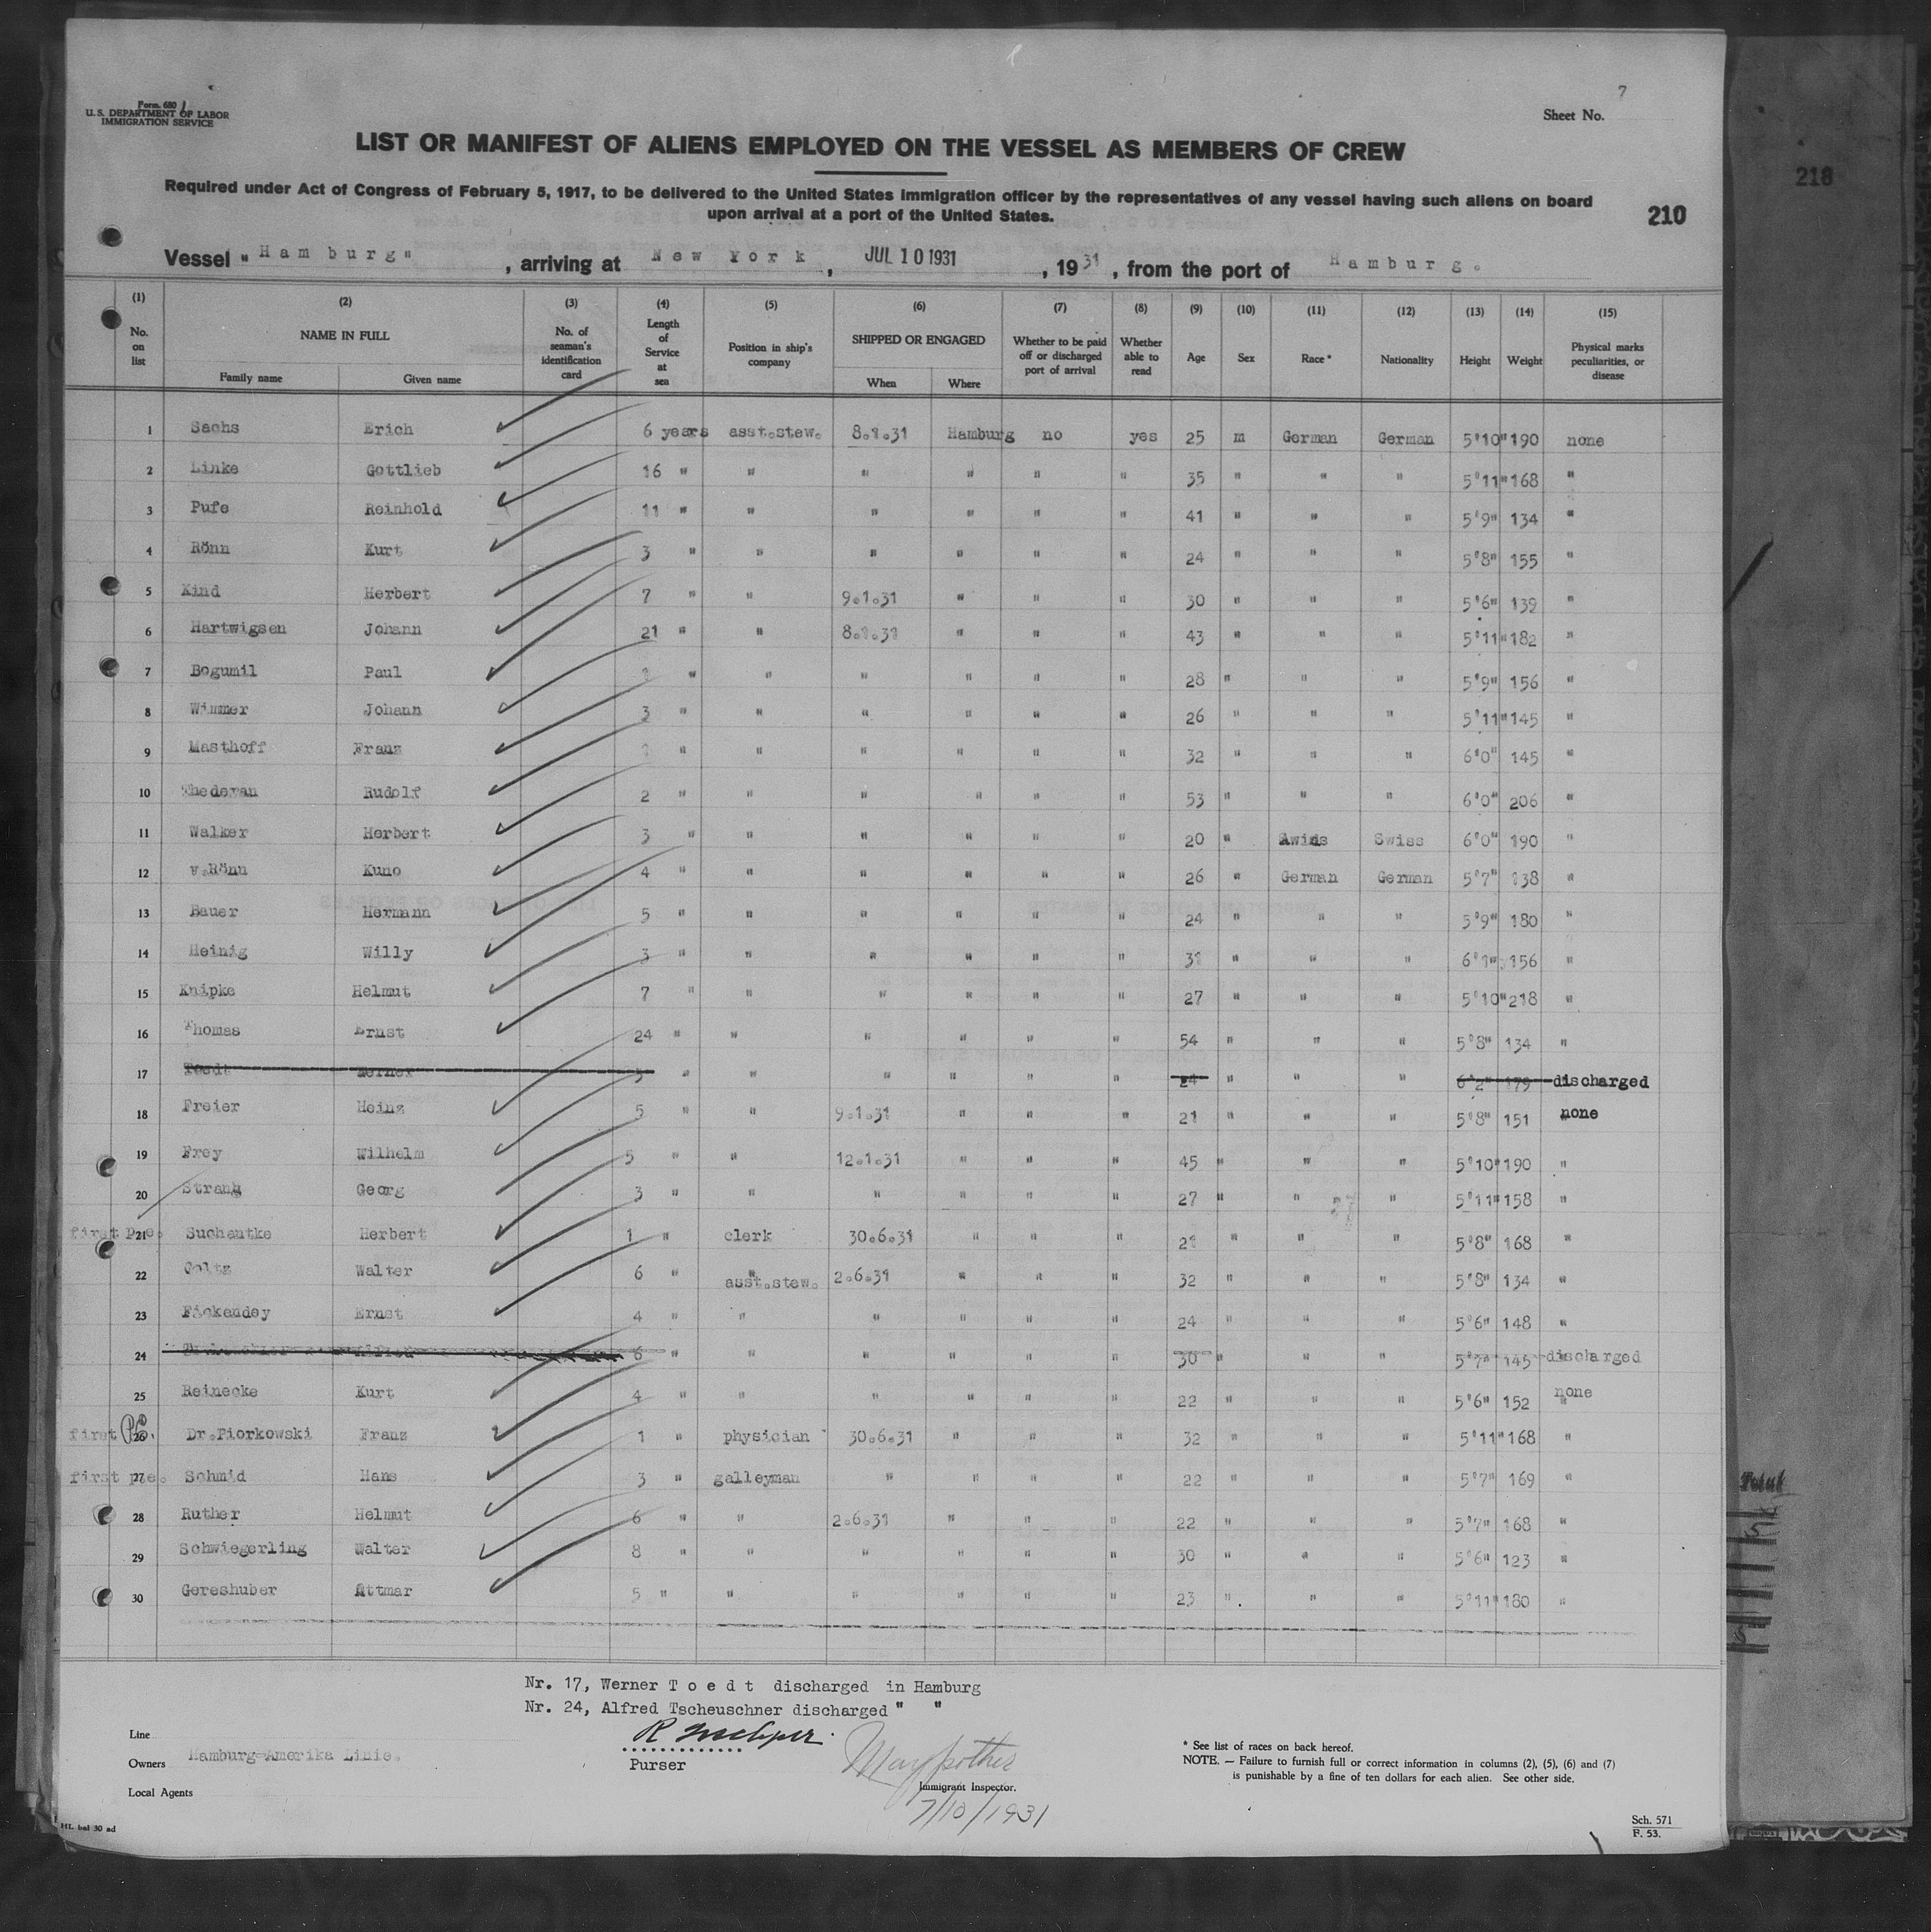 Form 680
U. S. DEPARTMENT OF LABOR
IMMIGRATION SERVICE
Sheet No. 7
LIST OR MANIFEST OF ALIENS EMPLOYED ON THE VESSEL AS MEMBERS OF CREW
Required under Act of Congress of February 5, 1917, to be delivered to the United States immigration officer by the representatives of any vessel having such aliens on board
upon arrival at a port of the United States.
210
218
Vessel "Hamburg", arriving at New York, JUL 10 1931, 1931, from the port of Hamburg.
(1) (2) (3) (4) (5) (6) (7) (8) (9) (10) (11) (12) (13) (14) (15)
No. on list NAME IN FULL Family name Given name No. of seaman's identification card Length of Service at sea Position in ship's company SHIPPED OR ENGAGED When Where Whether to be paid off or discharged port of arrival Whether able to read Age Sex Race* Nationality Height Weight Physical marks peculiarities, or disease
1 Sachs Erich 6 years asst.stew. 8.1.31 Hamburg no yes 25 m German German 5'10" 190 none
2 Linke Gottlieb 16 " " " " " " 35 " " " 5'11" 168 "
3 Pufe Reinhold 11 " " " " " " 41 " " " 5'9" 134 "
4 Rönn Kurt 3 " " " " " " 24 " " " 5'8" 155 "
5 Kind Herbert 7 " " 9.1.31 " " " 30 " " " 5'6" 139 "
6 Hartwigsen Johann 21 " " 8.1.31 " " " 43 " " " 5'11" 182 "
7 Bogumil Paul " " " " " " 28 " " " 5'9" 156 "
8 Wimmer Johann 3 " " " " " " 26 " " " 5'11" 145 "
9 Masthoff Franz " " " " " " 32 " " " 6'0" 145 "
10 Thederan Rudolf 2 " " " " " " 53 " " " 6'0" 206 "
11 Walker Herbert 3 " " " " " " 20 " Swiss Swiss 6'0" 190 "
12 v.Rönn Kuno 4 " " " " " " 26 " German German 5'7" 138 "
13 Bauer Hermann 5 " " " " " " 24 " " " 5'9" 180 "
14 Heinig Willy 3 " " " " " " 31 " " " 6'1" 156 "
15 Knipke Helmut 7 " " " " " " 27 " " " 5'10" 218 "
16 Thomas Ernst 24 " " " " " " 54 " " " 5'8" 134 "
17 Toedt Werner 5 " " " " " " 24 " " " 6'2" 179 discharged
18 Freier Heinz 5 " " 9.1.31 " " " 21 " " " 5'8" 151 none
19 Frey Wilhelm 5 " " 12.1.31 " " " 45 " " " 5'10" 190 "
20 Strang Georg 3 " " " " " " 27 " " " 5'11" 158 "
first p.e. 21 Suchantke Herbert 1 " clerk 30.6.31 " " " 21 " " " 5'8" 168 "
22 Goltz Walter 6 " asst.stew. 2.6.31 " " " 32 " " " 5'8" 134 "
23 Fickendey Ernst 4 " " " " " " 24 " " " 5'6" 148 "
24 6 " " " " " " 30 " " " 5'7" 145 discharged
25 Reinecke Kurt 4 " " " " " " 22 " " " 5'6" 152 none
first p.e. 26 Dr.Piorkowski Franz 1 " physician 30.6.31 " " " 32 " " " 5'11" 168 "
first p.e. 27 Schmid Hans 3 " galleyman " " " " 22 " " " 5'7" 169 "
28 Ruther Helmut 6 " " 2.6.31 " " " 22 " " " 5'7" 168 "
29 Schwiegerling Walter 8 " " " " " " 30 " " " 5'6" 123 "
30 Gereshuber Ottmar 5 " " " " " " 23 " " " 5'11" 180 "
Nr. 17, Werner Toedt discharged in Hamburg
Nr. 24, Alfred Tscheuschner discharged " "
Line
Owners Hamburg-Amerika Linie.
Local Agents
Purser
Immigrant Inspector.
7/10/1931
* See list of races on back hereof.
NOTE. — Failure to furnish full or correct information in columns (2), (5), (6) and (7)
is punishable by a fine of ten dollars for each alien. See other side.
HL bal 30 ad
Sch. 571
F. 53.
Total